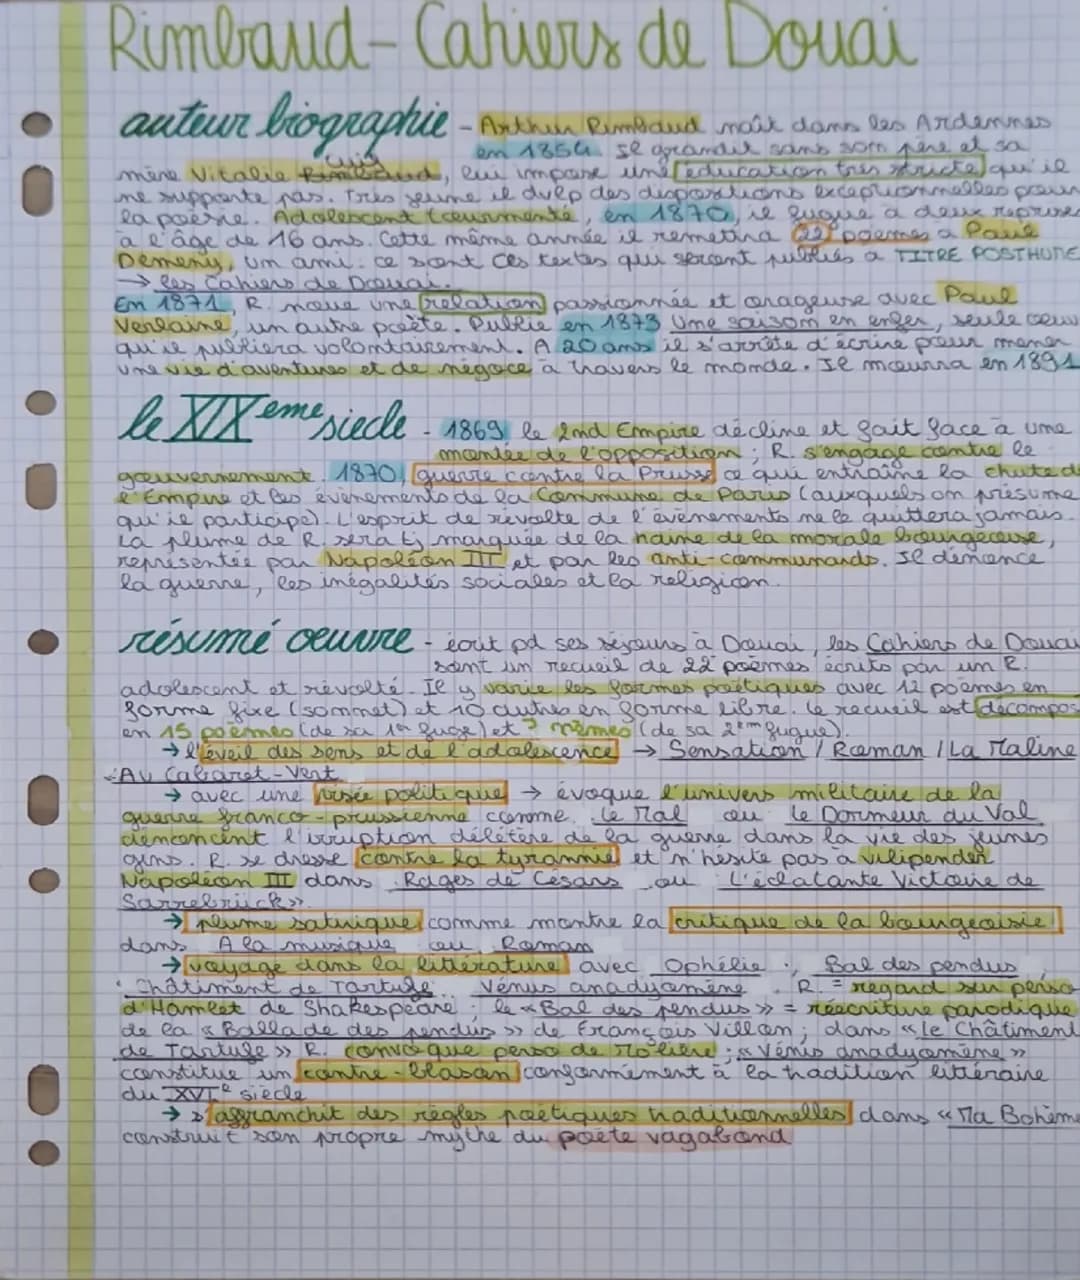 Rimbaud - Cahiers de Douai
auteur biographie - Arthur Rimbaud naît dans les Ardennes
en 1854. Il grandit sans son père et sa
cuif
mère Vitalie Rimbaud, lui impose une éducation très stricte qu'il
ne supporte pas. Très jeune il dvlp des dispositions exceptionnelles pour
la poésie. Adolescent tourmenté, en 1870, il fugue à deux reprises
à l'âge de 16 ans. Cette même année il remettra 22 poèmes à Paul
Demeny, un ami. ce sont ces textes qui seront publiés à TITRE POSTHUME
→ les Cahiers de Douai.
En 1871, R. noue une relation passionnée et orageuse avec Paul
Verlaine, un autre poète. Publie en 1873 Une saison en enfer, seule oeuv
qu'il publiera volontairement. A 20 ans il s'arrête d'écrire pour mener
une vie d'aventures et de négoce à travers le monde. Il mourra en 1891
le XIXeme siecle - 1869, le 2nd Empire décline et fait face à une
montée de l'opposition ; R. s'engage contre le
gouvernement. 1870, guerre contre la Prusse ce qui entraîne la chute d
l'Empire et les évènements de la Commune de Paris (auxquels on présume
qu'il participe). L'esprit de révolte de l'évènements ne le quittera jamais.
La plume de R. sera tj marquée de la haine de la morale bourgeoise,
représentée par Napoléon III et par les anti-communards. Il dénonce
la guerre, les inégalités sociales et la religion.
résumé oeuvre - écrit pd ses séjours à Douai, les Cahiers de Douai
sont un recueil de 22 poèmes écrits par un R.
adolescent et révolté. Il y varie les formes poétiques avec 12 poèmes en
forme fixe (sonnet) et 10 autres en forme libre. Le recueil est décompos
en 15 poèmes (de sa 1re fugue) et 7 mêmes (de sa 2ème fugue).
→ l'éveil des sens et de l'adolescence → Sensation / Roman / La Maline
Au Cabaret-Vert
→ avec une visée politique → évoque l'univers militaire de la
guerre franco-prussienne comme Le Mal ou Le Dormeur du Val
dénoncent l'irruption délétère de la guerre dans la vie des jeunes
gens. R. se dresse contre la tyrannie et n'hésite pas à vilipender
Napoléon III dans Rages de Césars ou L'éclatante Victoire de
Sarrebrück».
→ plume satirique comme montre la critique de la bourgeoisie
dans A la musique ou Roman
→ voyage dans la littérature avec Ophélie, Bal des pendus,
Châtiment de Tartufe Vénus anadyomène. R. = regard sur perso
d'Hamlet de Shakespeare ; le «Bal des pendus» = réécriture parodique
de la «Ballade des pendus» de François Villon ; dans «Le Châtiment
de Tartufe» R. convoque perso de Molière ; «Vénus anadyomène»
constitue un contre-blason conformément à la tradition littéraire
du XVIe siècle
→ s'affranchit des règles poétiques traditionnelles dans «Ma Bohème
construit son propre mythe du poète vagabond